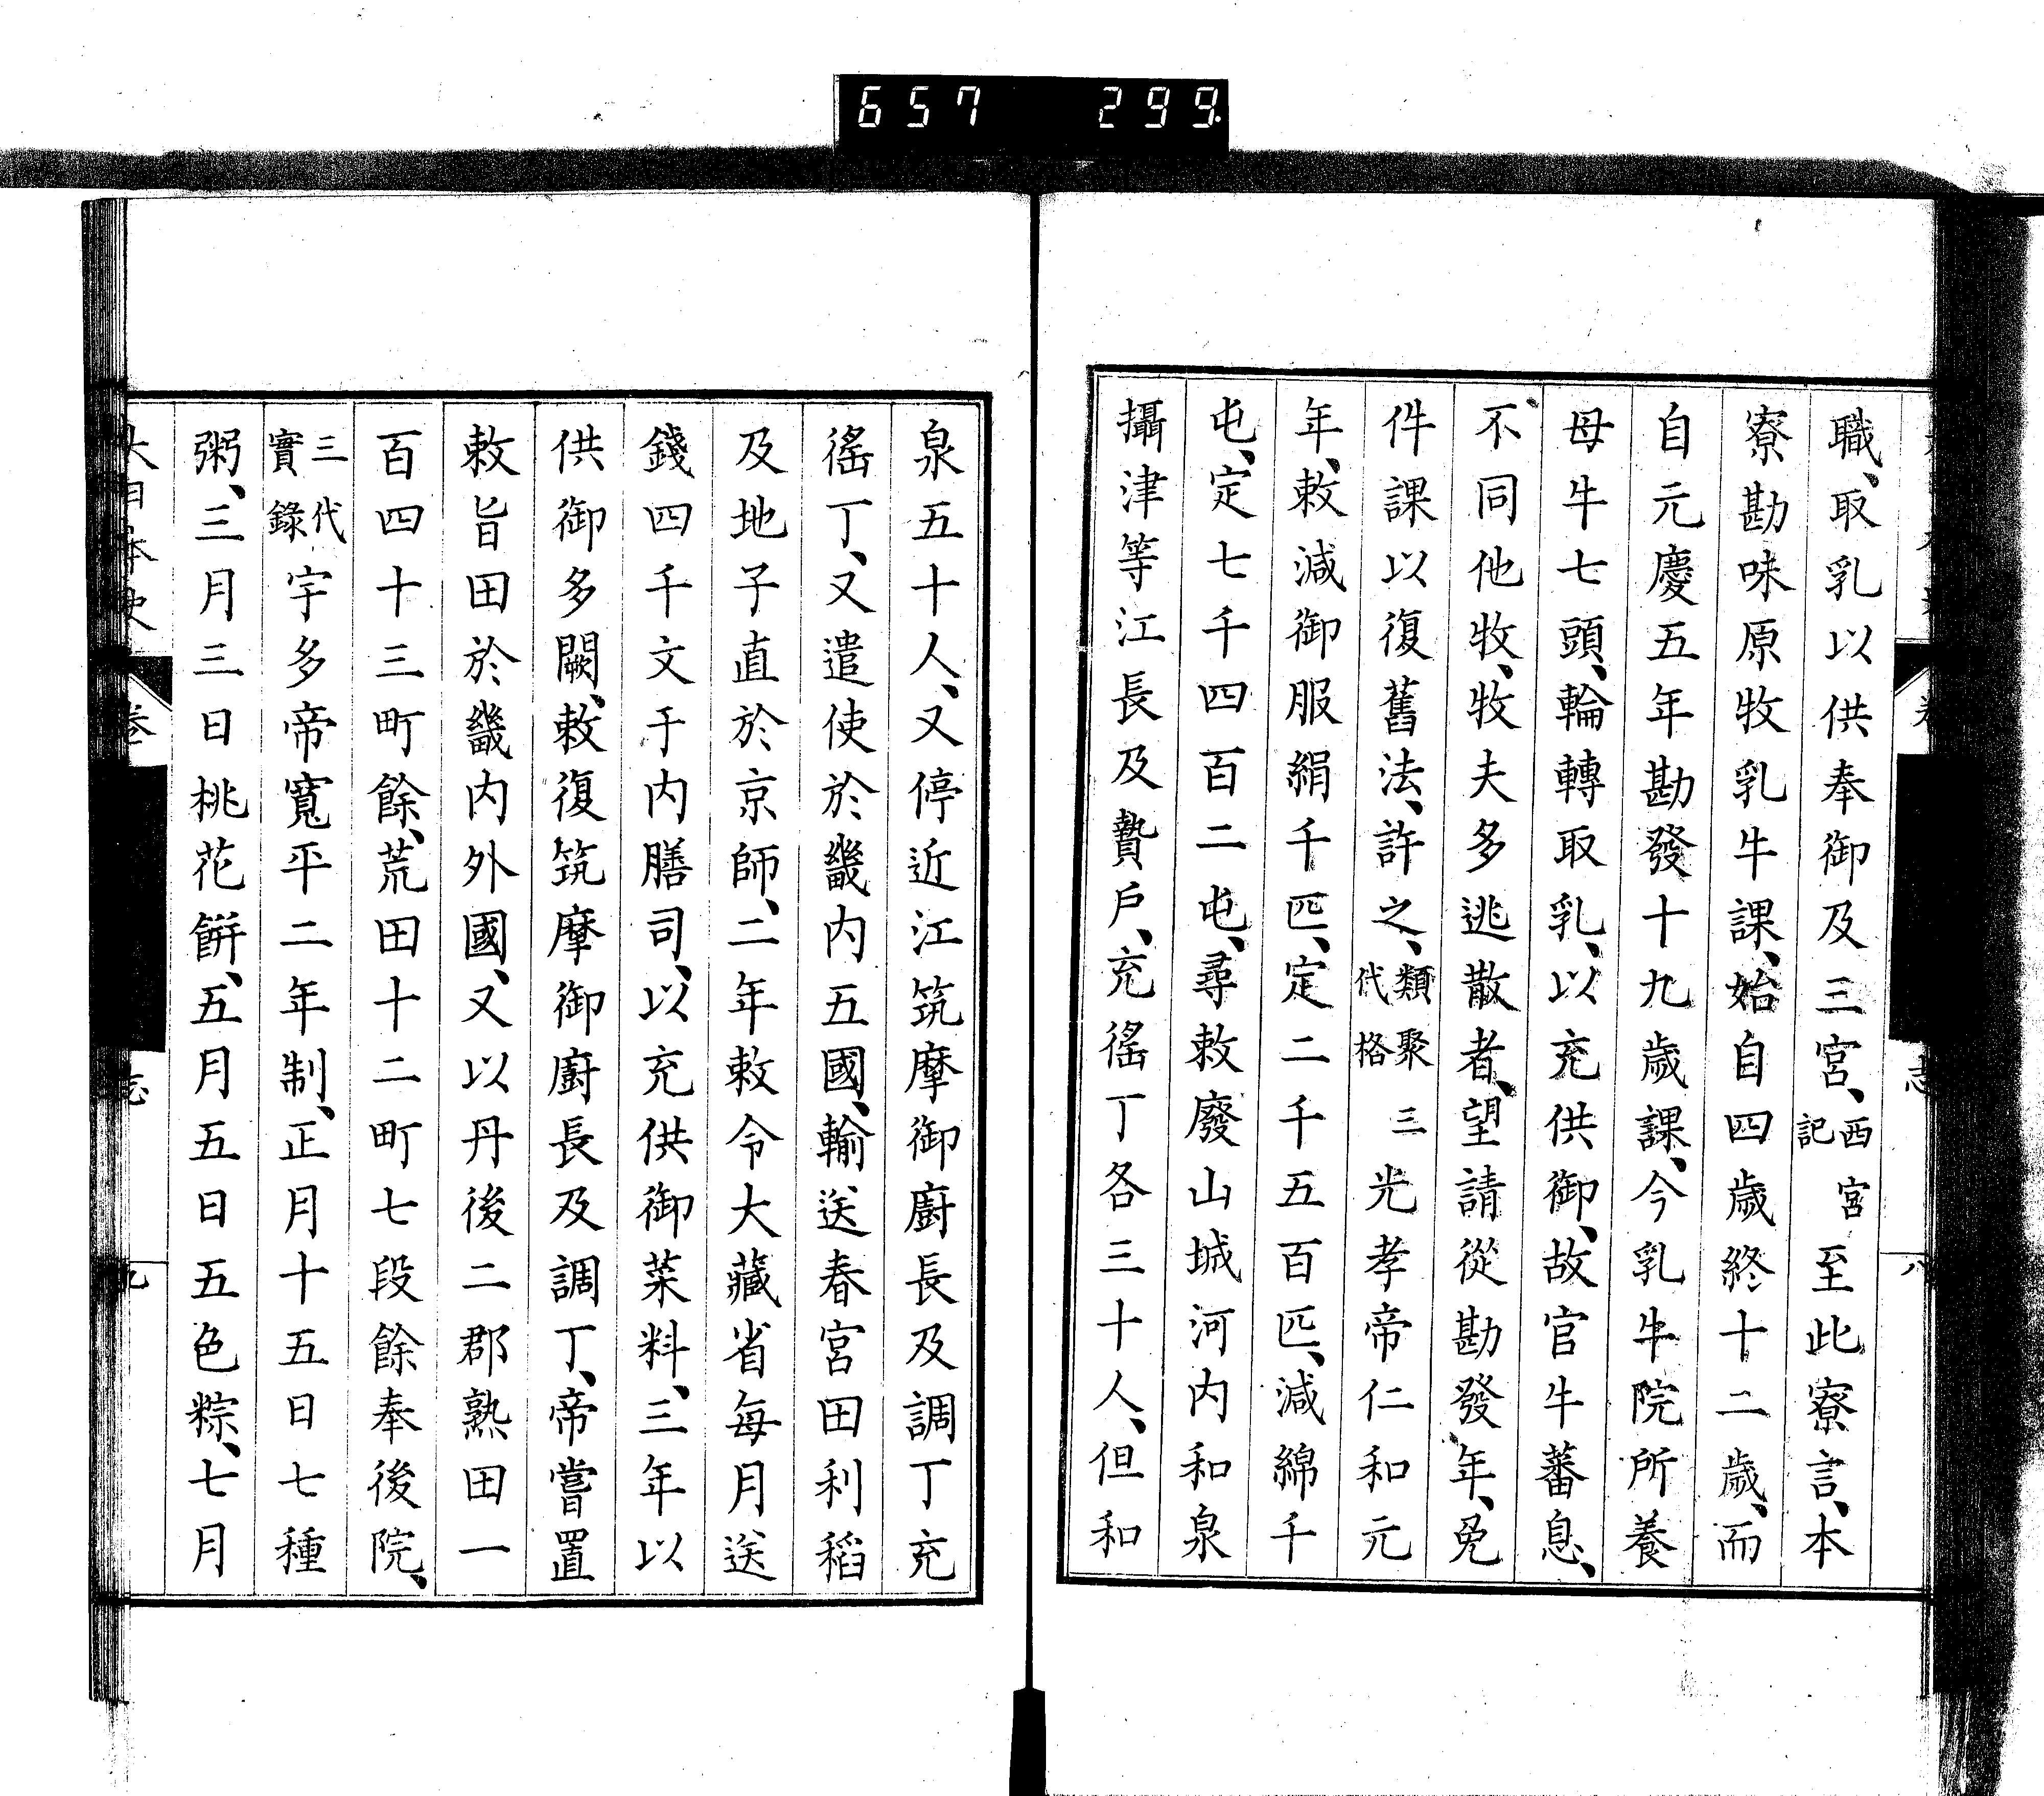 657 299.
職、取乳以供奉御及三宮、西宮記至此寮言、本
寮勘味原牧乳牛課、始自四歲終十二歲、而
自元慶五年勘發十九歲課、今乳牛院所養
母牛七頭、輪轉取乳、以充供御、故官牛蕃息、
不同他牧、牧夫多逃散者、望請從勘發年、免
件課以復舊法、許之、類聚三代格光孝帝仁和元
年、敕減御服絹千匹、定二千五百匹、減綿千
屯、定七千四百二屯、尋敕廢山城河内和泉
攝津等江長及贄戶、充徭丁各三十人、但和
泉五十人、又停近江筑摩御廚長及調丁充
徭丁、又遣使於畿内五國、輸送春宮田利稻
及地子直於京師、二年敕令大藏省每月送
錢四千文于内膳司、以充供御菜料、三年以
供御多闕、敕復筑摩御廚長及調丁、帝嘗置
敕旨田於畿内外國、又以丹後二郡熟田一
百四十三町餘、荒田十二町七段餘奉後院、
三代實錄宇多帝寬平二年制、正月十五日七種
粥、三月三日桃花餅、五月五日五色粽、七月
大日本史
卷
志
九